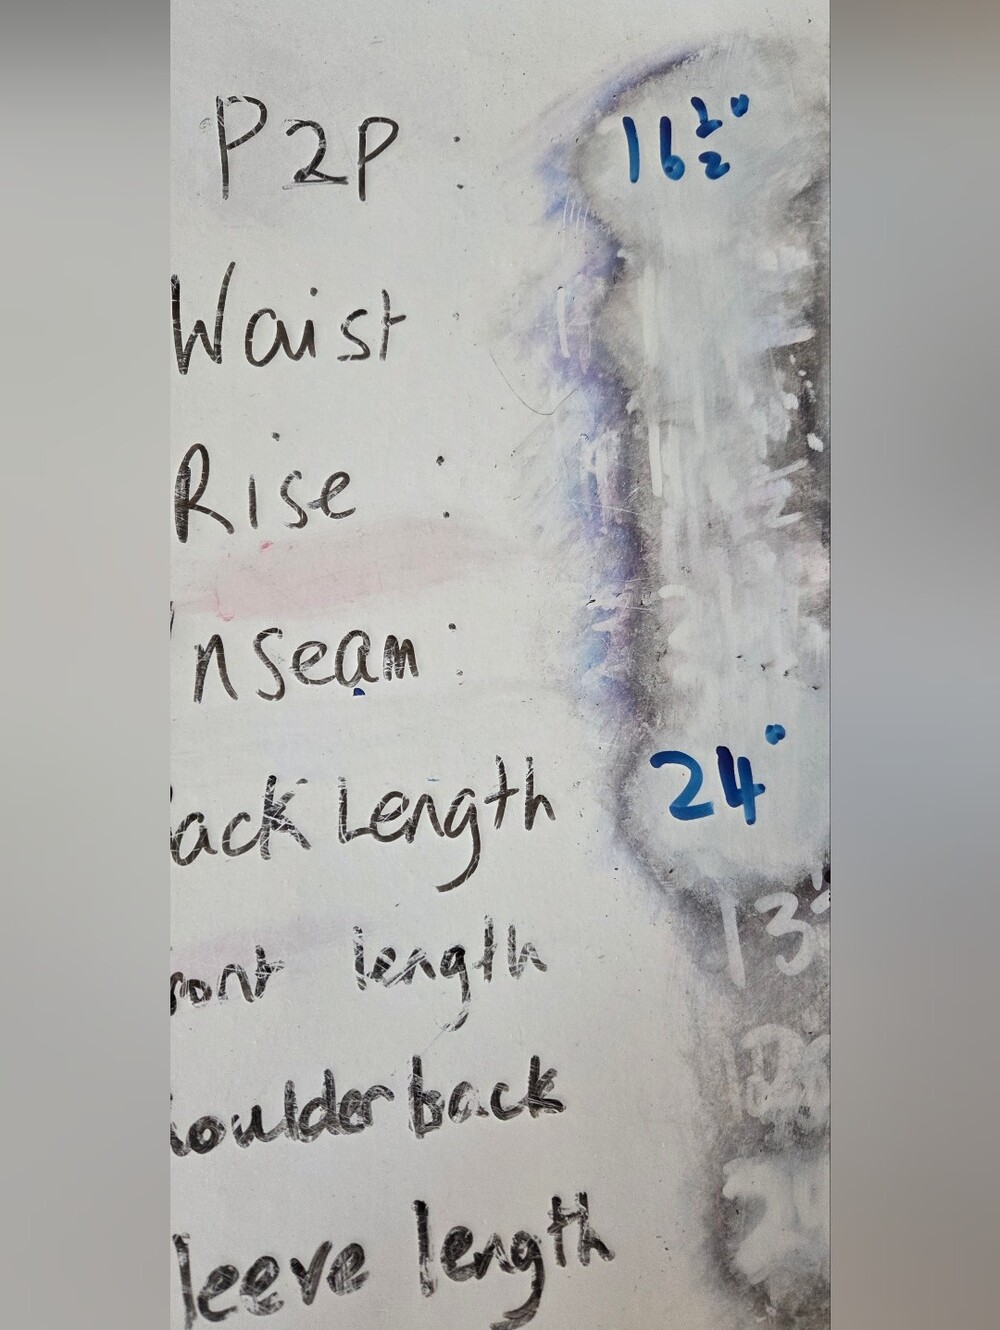 P2P : 16 1/2"
Waist :
Rise :
Inseam :
ack Length 24"
ront length
houlder back
leeve length